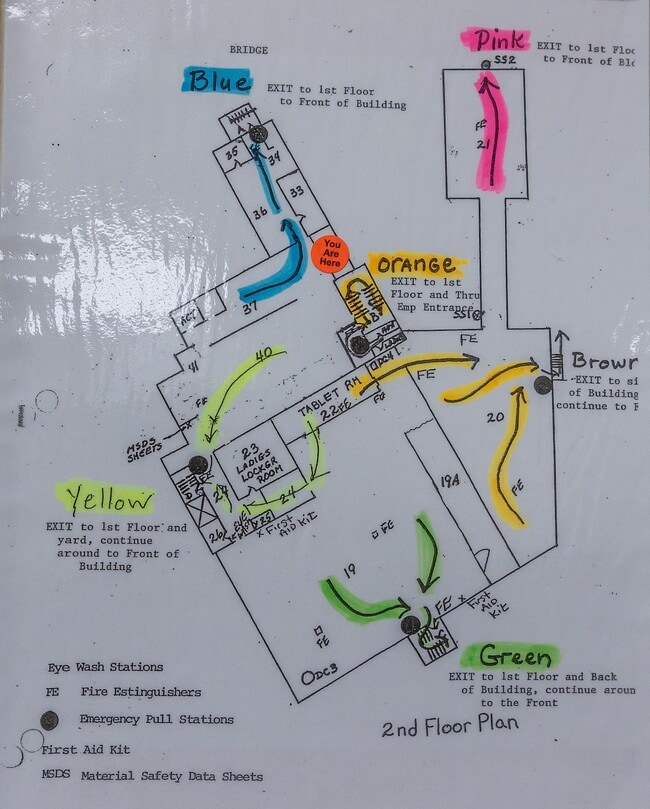 BRIDGE
Pink
EXIT to 1st
to Front of
SS2
Blue
EXIT to 1st Floor
to Front of Building
FE
21
35
34
33
36
You
Are
Here
ORANGE
EXIT to 1st
Floor and Thru
Emp Entrance
37
B
FE
ODC4
FE
Brown
EXIT to
of Building
continue to
41
40
FE
TABLET RM
22 FE
FE
20
FE
MSDS
SHEETS
23
LADIES
LOCKER
ROOM
FE
D
24
19A
Yellow
EXIT to 1st Floor and
yard, continue
around to Front of
Building
26
25
x First
Aid Kit
FE
19
FE
FE x First
Aid
Kit
ODC3
Green
EXIT to 1st Floor and Back
of Building, continue
to the Front
2nd Floor Plan
Eye Wash Stations
FE Fire Estinguishers
Emergency Pull Stations
First Aid Kit
MSDS Material Safety Data Sheets